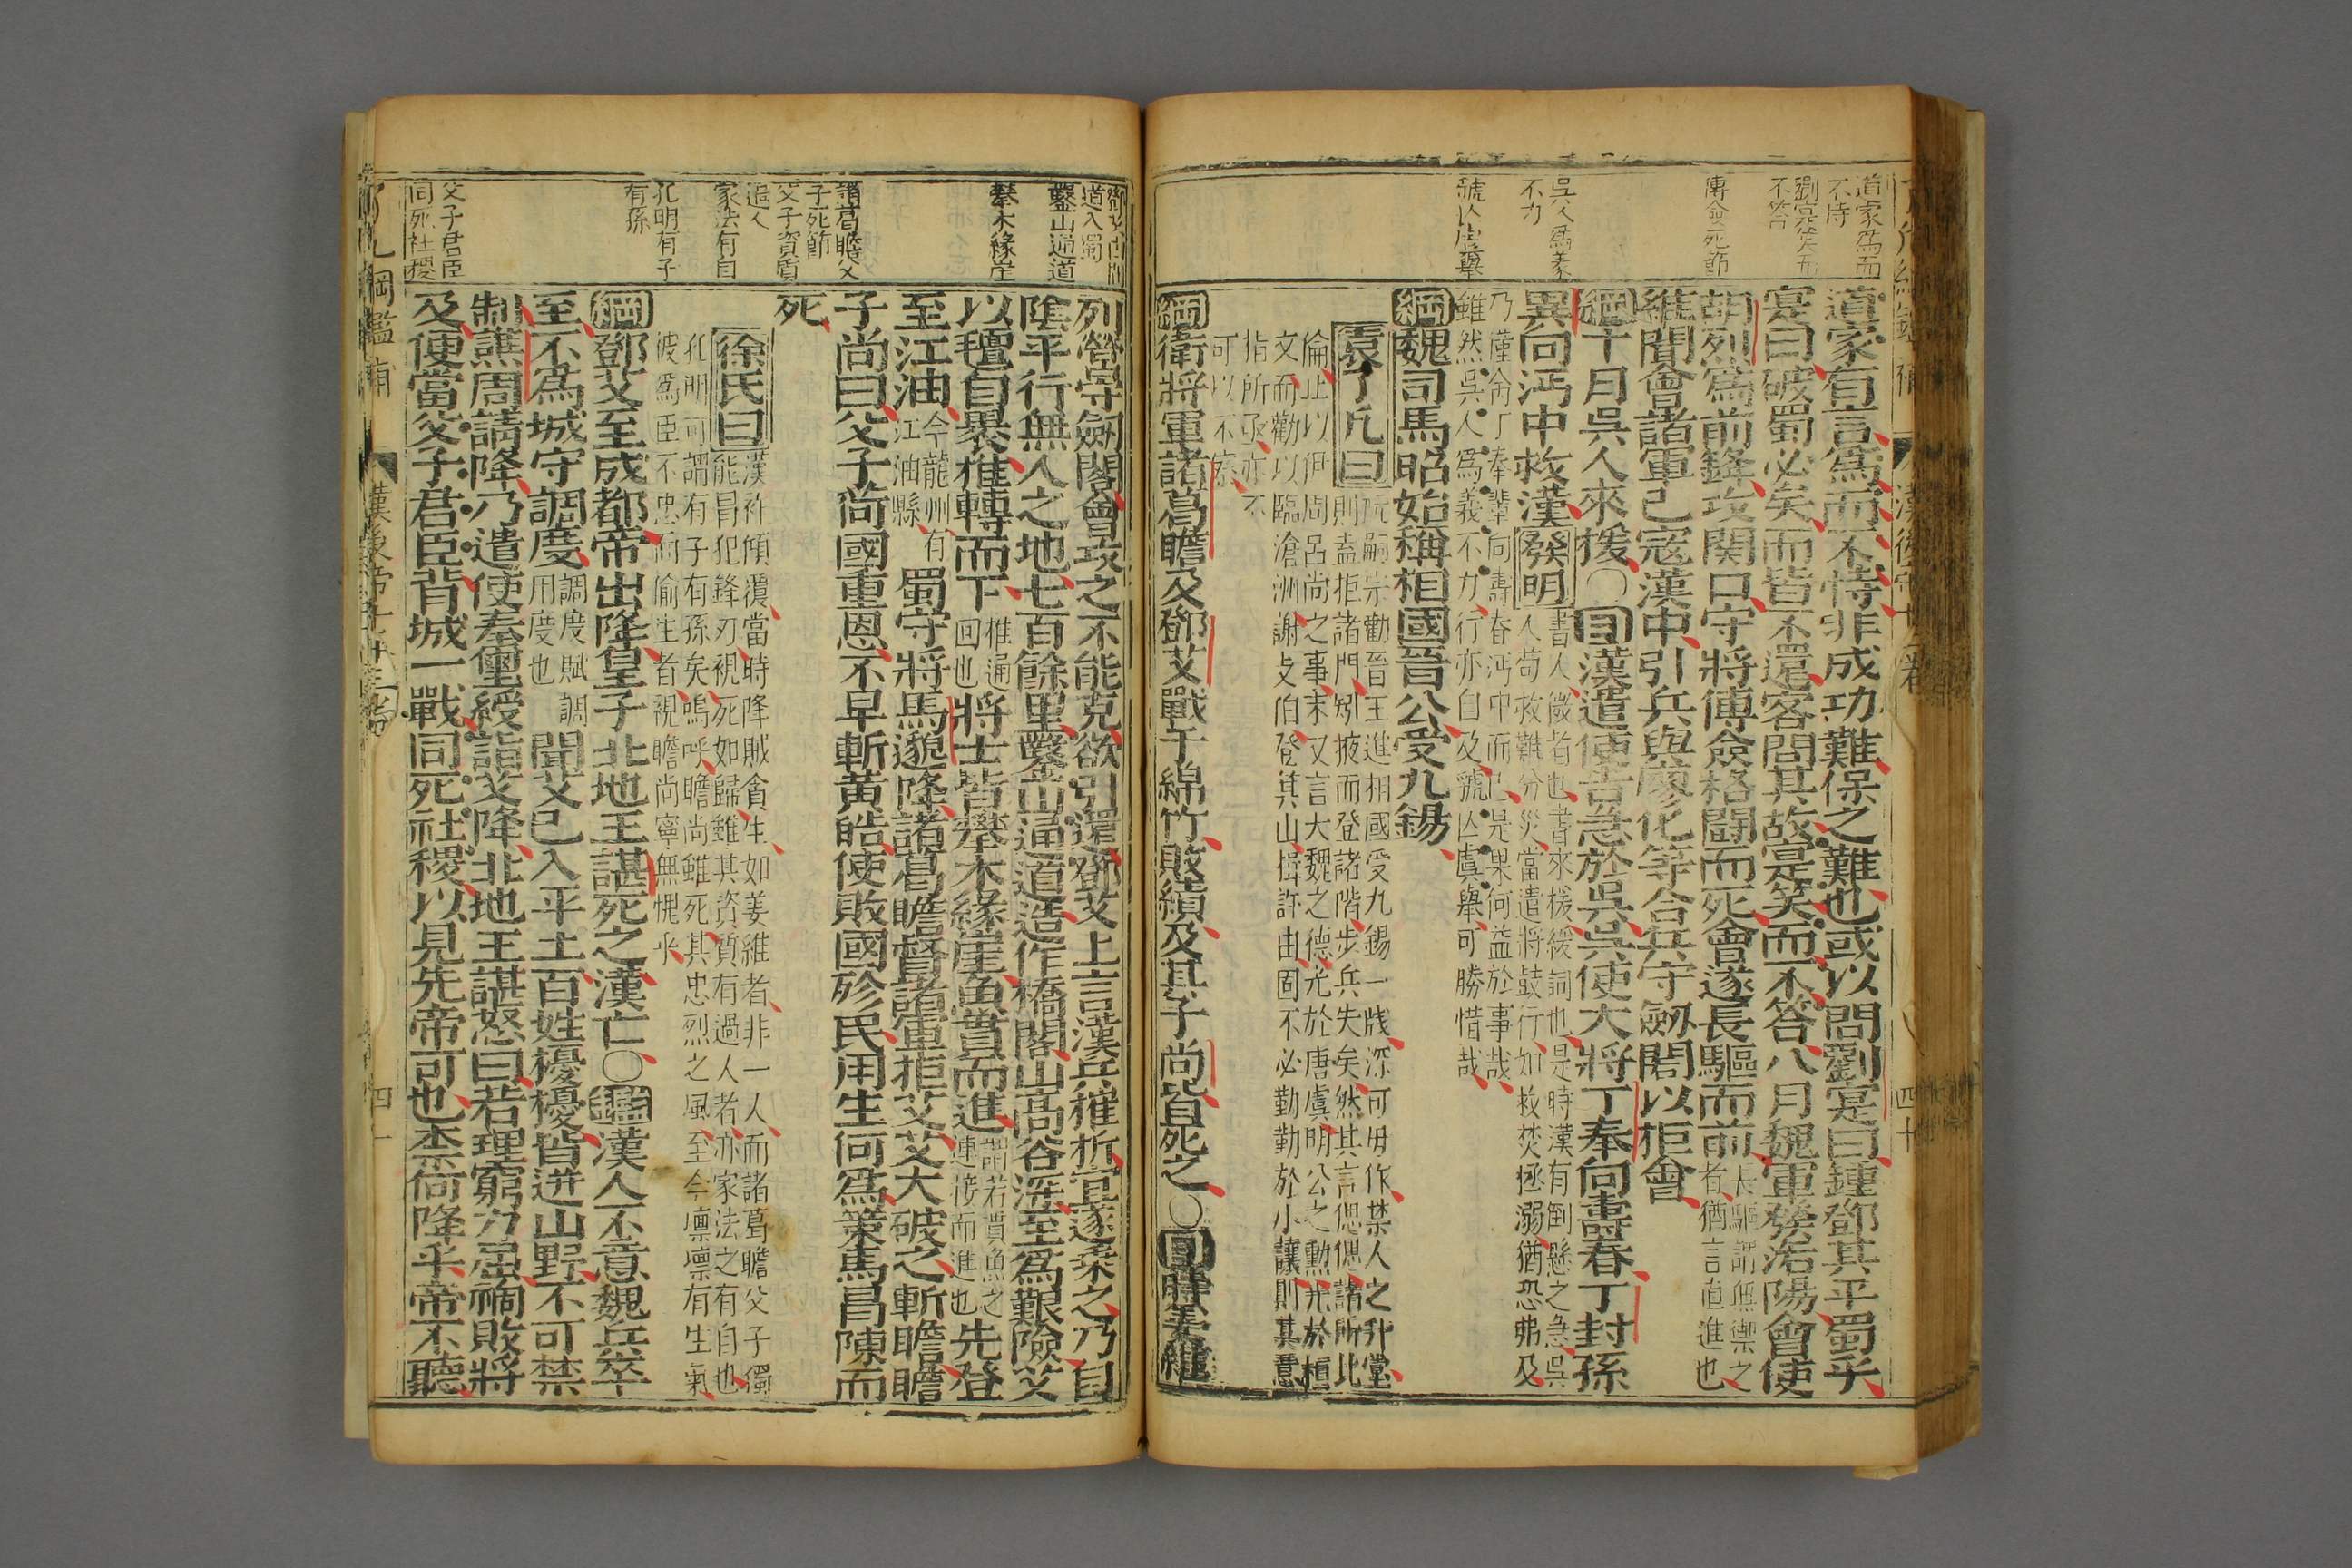 道家為而
不恃
劉寔笑而
不答
傅僉死節
吳人為義
不力
虢以虞舉
道家有言為而不恃非成功難保之難也或以問劉寔曰鍾鄧其平蜀乎
寔曰破蜀必矣而皆不還客問其故寔笑而不答八月魏軍發洛陽會使
胡烈為前鋒攻関口守將傅僉格鬪而死會遂長驅而前長驅謂無禦之
者猶言直進也
維聞會諸軍已寇漢中引兵與廖化等合兵守劒閣以拒會
綱十月吳人來援〇目漢遣使告急於吳吳使大將丁奉向壽春丁封孫
異向沔中救漢發明書人微者也書來援緩詞也是時漢有倒懸之急吳
人苟救難分災當遣將鼓行如救焚拯溺猶恐弗及
乃僅令丁奉輩向壽春沔中而已是果何益於事哉
雖然吳人為義不力行亦自及虢亡虞舉可勝惜哉
綱魏司馬昭始稱相國晉公受九錫
袁了凡曰阮嗣宗勸晉王進相國受九錫一牋深可毋作禁人之升堂
則盍拒諸門矧掖而登諸階步兵失矣然其言偲偲諸所比
倫止以伊周呂尚之事末又言大魏之德光於唐虞明公之勳兆於桓
文而勸以臨滄洲謝支伯登箕山揖許由固不必勤勤於小讓則其意
指所亟亦不
可以不察
綱衛將軍諸葛瞻及鄧艾戰于綿竹敗績及其子尚皆死之〇目時姜維
道入蜀
鑿山通道
攀木緣崖
諸葛瞻父
子死節
父子資質
過人
家法有自
孔明有子
有孫
父子君臣
同死社稷
列營守劒閣會攻之不能克欲引還鄧艾上言漢兵摧折宜遂乘之乃自
陰平行無人之地七百餘里鑿山通道造作橋閣山高谷深至為艱險艾
以氊自裹推轉而下推通
回也將士皆攀木緣崖魚貫而進謂若貫魚之
連接而進也先登
至江油今龍州有
江油縣蜀守將馬邈降諸葛瞻督諸軍拒艾艾大破之斬瞻瞻
子尚曰父子荷國重恩不早斬黃皓使敗國殄民用生何為策馬冒陳而
死
徐氏曰漢祚傾覆當時降賊貪生如姜維者非一人而諸葛瞻父子獨
能冒犯鋒刃視死如歸雖其資質有過人者亦家法之有自也
孔明可謂有子有孫矣嗚呼瞻尚雖死其忠烈之風至今凛凛有生氣
彼為臣不忠而偷生者視瞻尚寧無愧乎
綱鄧艾至成都帝出降皇子北地王諶死之漢亡〇鑑漢人不意魏兵卒
至不為城守調度調度賦調
用度也聞艾已入平土百姓擾擾皆迸山野不可禁
制譙周請降乃遣使奉璽綬詣艾降北地王諶怒曰若理窮力屈禍敗將
及便當父子君臣背城一戰同死社稷以見先帝可也柰何降乎帝不聽